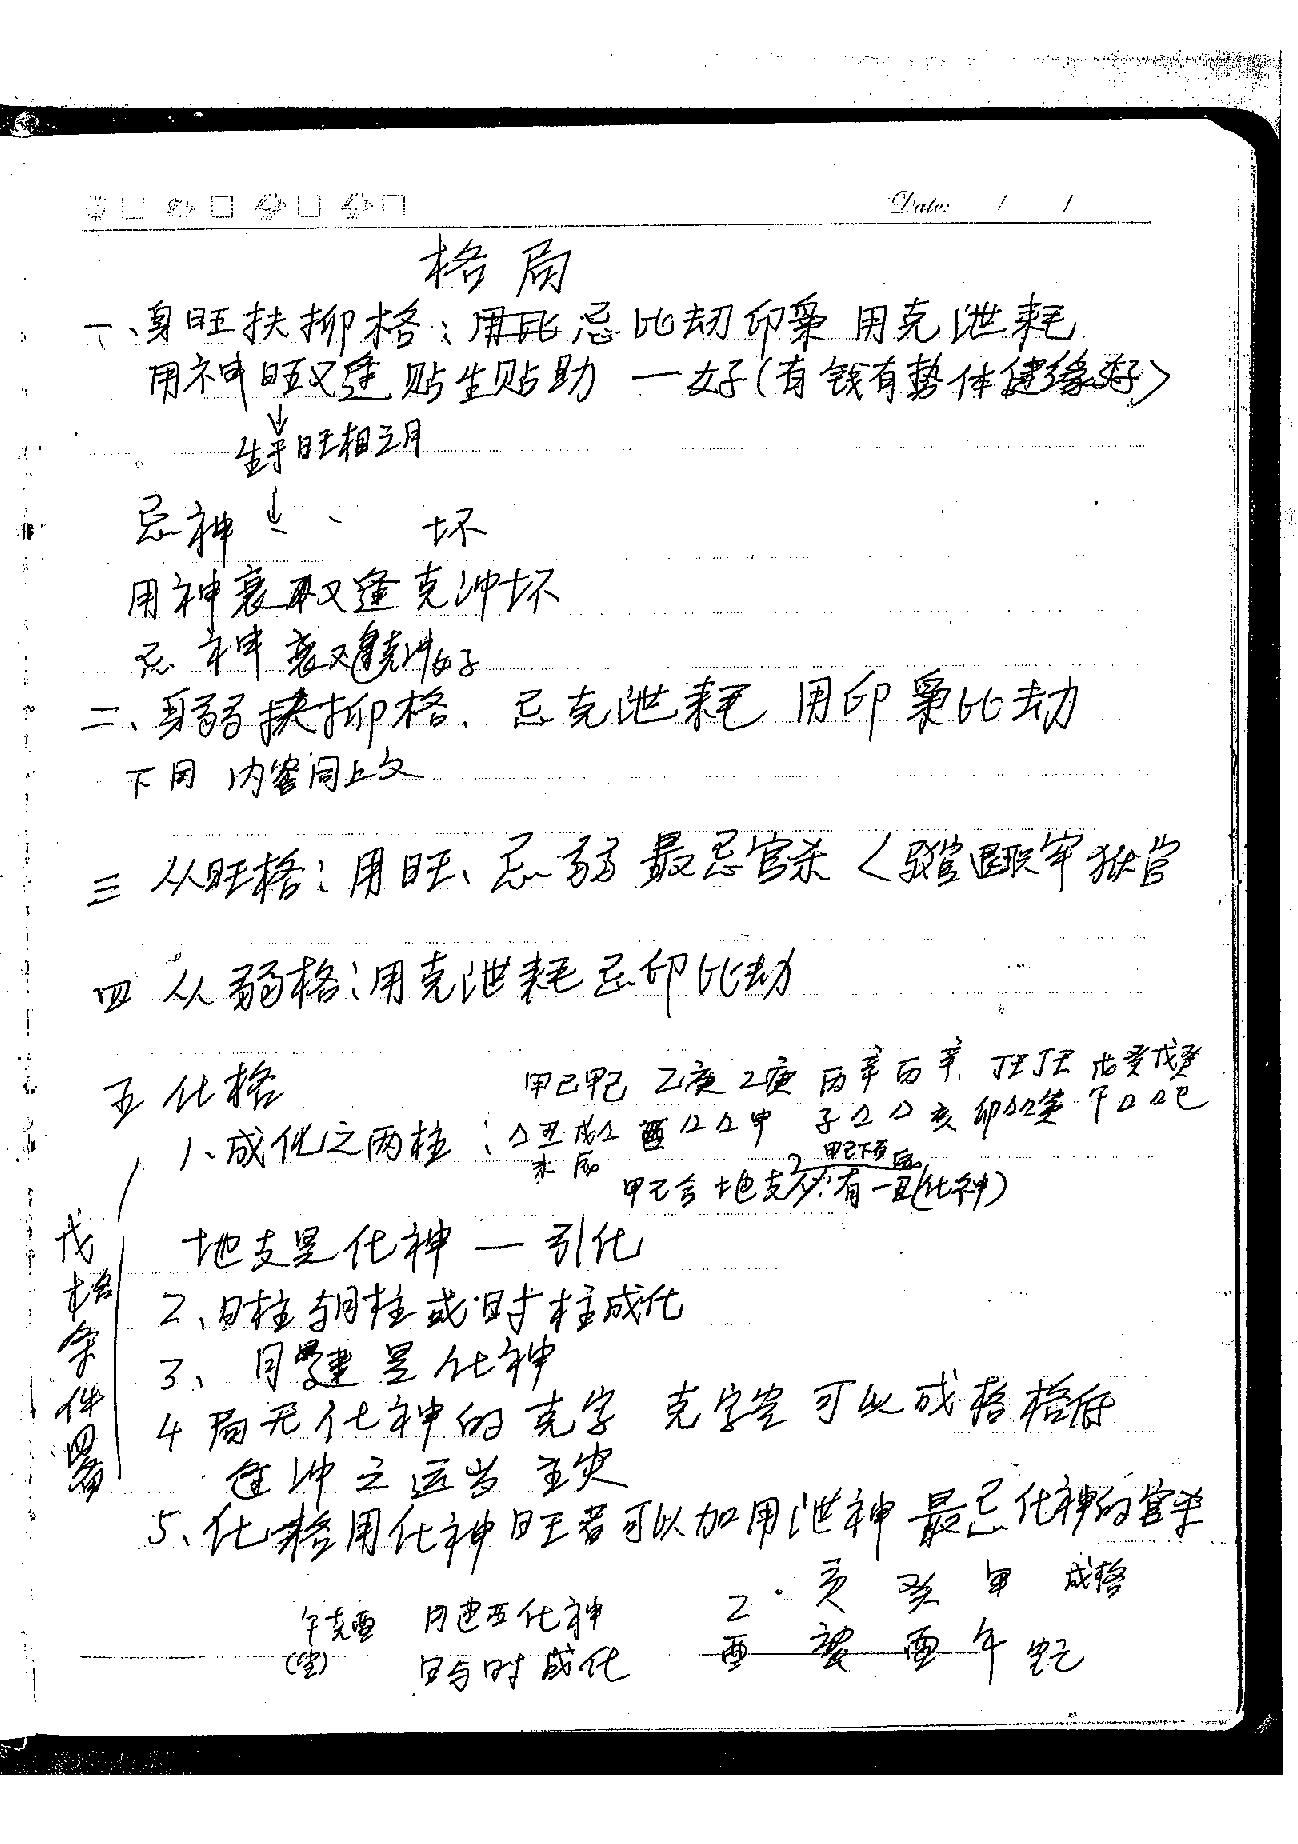 Date: / /
格局
一、身旺扶抑格:用 忌比劫印枭 用克泄耗
用神旺又逢贴生贴助 一好(有钱有势体健缘好)
↓
生于旺相之月
忌神 ↓ 坏
用神衰 又逢克冲坏
忌神衰又逢克冲好
二、身弱扶抑格. 忌克泄耗 用印枭比劫
下用 内容同上文
三 从旺格:用旺、忌弱 最忌官杀 牢狱官
四 从弱格:用克泄耗忌印比劫
五 化格
甲己甲己 乙庚乙庚 丙辛丙辛 丁壬丁壬 戊癸戊癸
1、成化之两柱:△丑 戌△ 酉△△申 子△△亥 卯△△ △△巳
未 辰
甲己合 地支必有一 (化神)
地支是化神 — 引化
成格条件四备
2、日柱与月柱或时柱成化
3、月建是化神
4 局无化神的克字 克字空可以成格 格
逢冲之运当主灾
5、化格用化神旺者可以加用泄神 最忌化神的官杀
乙 · 庚 癸 甲 成格
午克酉 月建酉化神
酉 酉 午
(空) 日与时成化